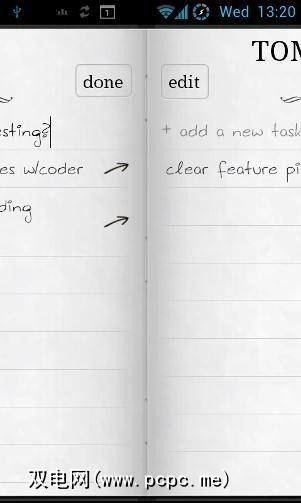 1 Wed 13:20
TOM
done
edit
esting?
+ add a new task
es w/coder
clear feature pi
ding
双电网(www.pcpc.me)